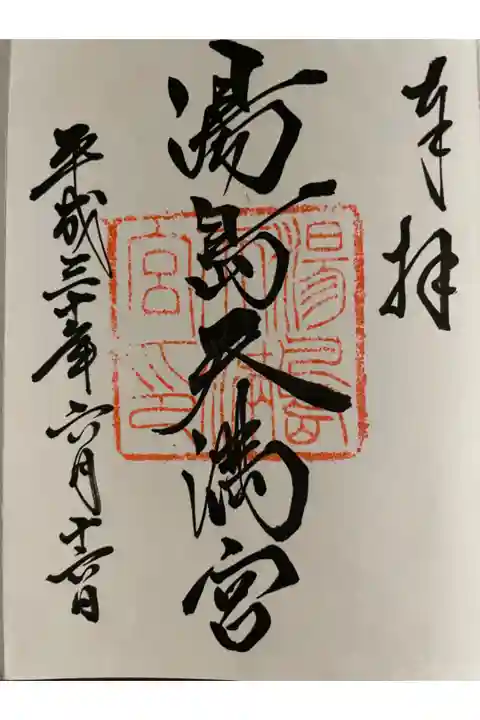 奉拝
湯島天満宮
平成三十年六月十六日
湯島天満宮印